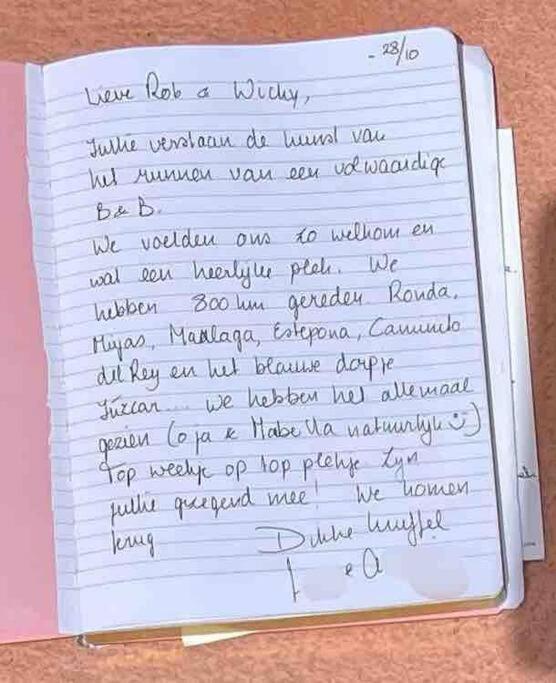 - 28/10
Lieve Rob & Wichy,
Jullie verstaan de kunst van
het runnen van een volwaardige
B&B.
We voelden ons zo welkom en
wat een heerlijke plek. We
hebben 800 km gereden. Ronda,
Mijas, Maalaga, Estepona, Camunito
del Rey en het blauwe dorpje
Júzcar... We hebben het allemaal
gezien (o ja & Mabella natuurlijk
Top weekje op top plekje zijn
jullie gezegend mee! We komen
terug
Dikke knuffel
& A